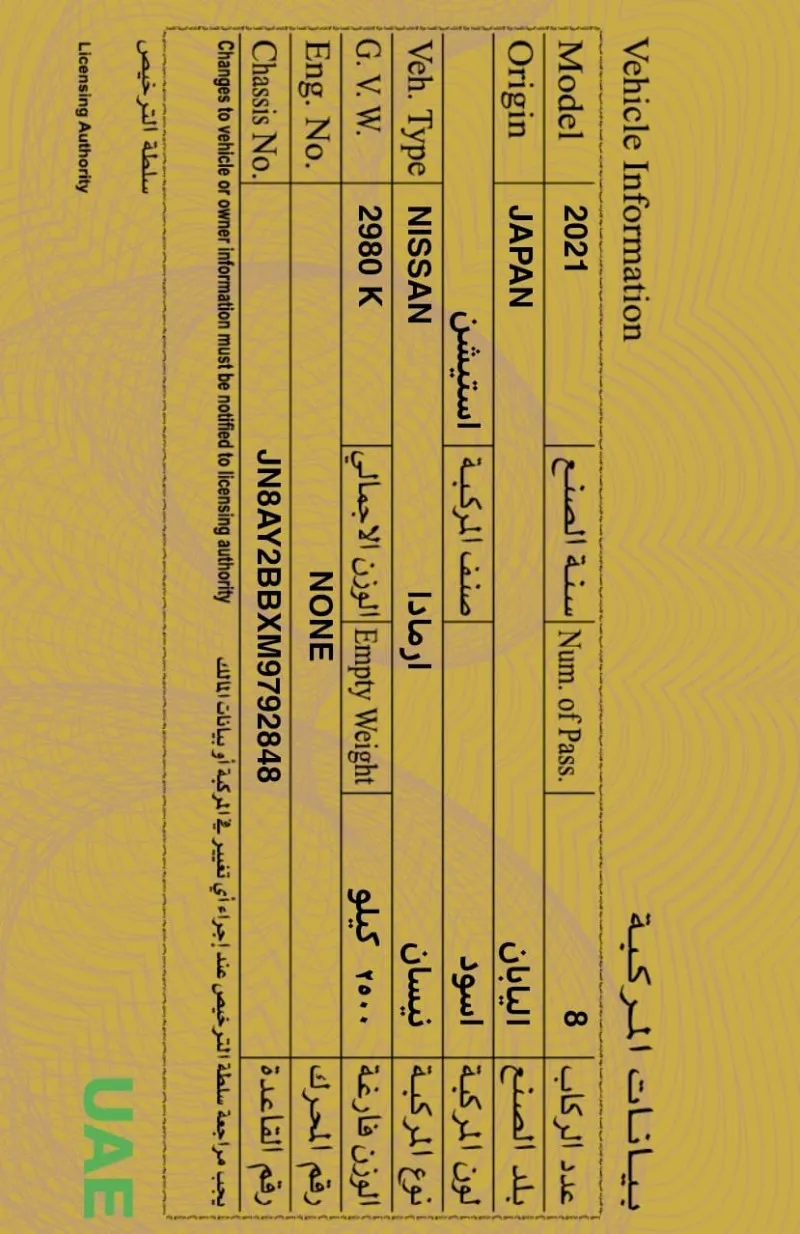 Vehicle Information بيانات المركبة
Model 2021 سنة الصنع Num. of Pass. 8 عدد الركاب
Origin JAPAN اليابان بلد الصنع
استيشن صنف المركبة اسود لون المركبة
Veh. Type NISSAN ارمادا نيسان نوع المركبة
G. V. W. 2980 K الوزن الاجمالي Empty Weight ٢٥٠٠ كيلو الوزن فارغة
Eng. No. NONE رقم المحرك
Chassis No. JN8AY2BBXM9792848 رقم القاعدة
Changes to vehicle or owner information must be notified to licensing authority يجب مراجعة سلطة الترخيص عند إجراء أي تغيير في المركبة أو بيانات المالك
سلطة الترخيص
Licensing Authority
UAE